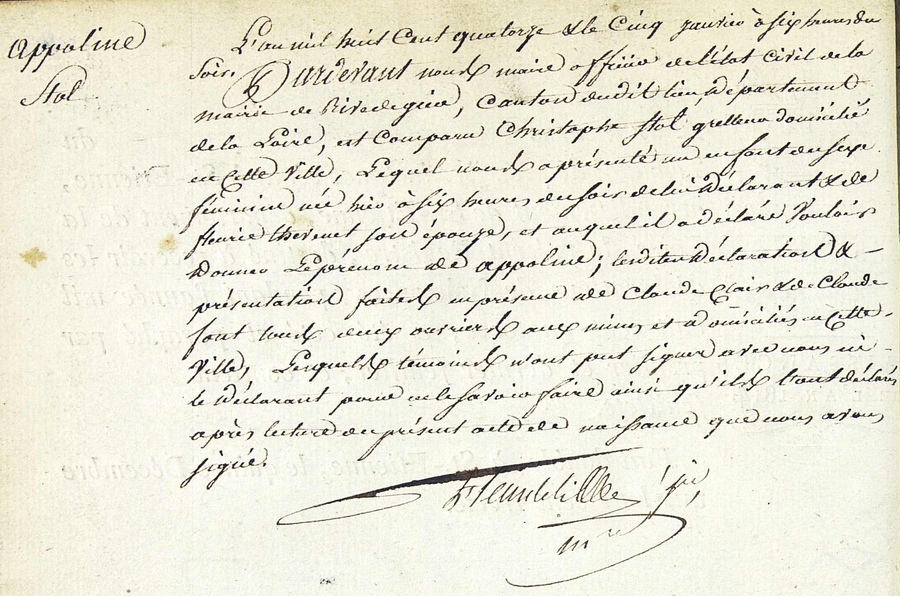 Appoline
Stol
L'an mil huit Cent quatorze & le Cinq janvier à six heures du
soir. Pardevant nous maire officier de l'état Civil de la
mairie de Rivedegier, Canton dudit lieu, Département
de la Loire, est Comparu Christophe Stol grelleur domicilié
en Cette Ville, Lequel nous a présenté un enfant du sexe
féminin née hier à six heures du soir de lui Déclarant & de
fleurie thevenet son épouze, et auquel il a déclaré Vouloir
Donner Le prénom de appoline; lesdites Déclaration & -
présentation faites en présence de Claude Clair & de Claude
font tous deux ouvriers aux mines et domiciliés en Cette -
Ville, Lesquels témoins n'ont peut signer avec nous ni -
le Déclarant pour ne le savoir faire ainsi qu'ils l'ont déclaré
après lecture du présent acte de naissance que nous avons
signé.
mre